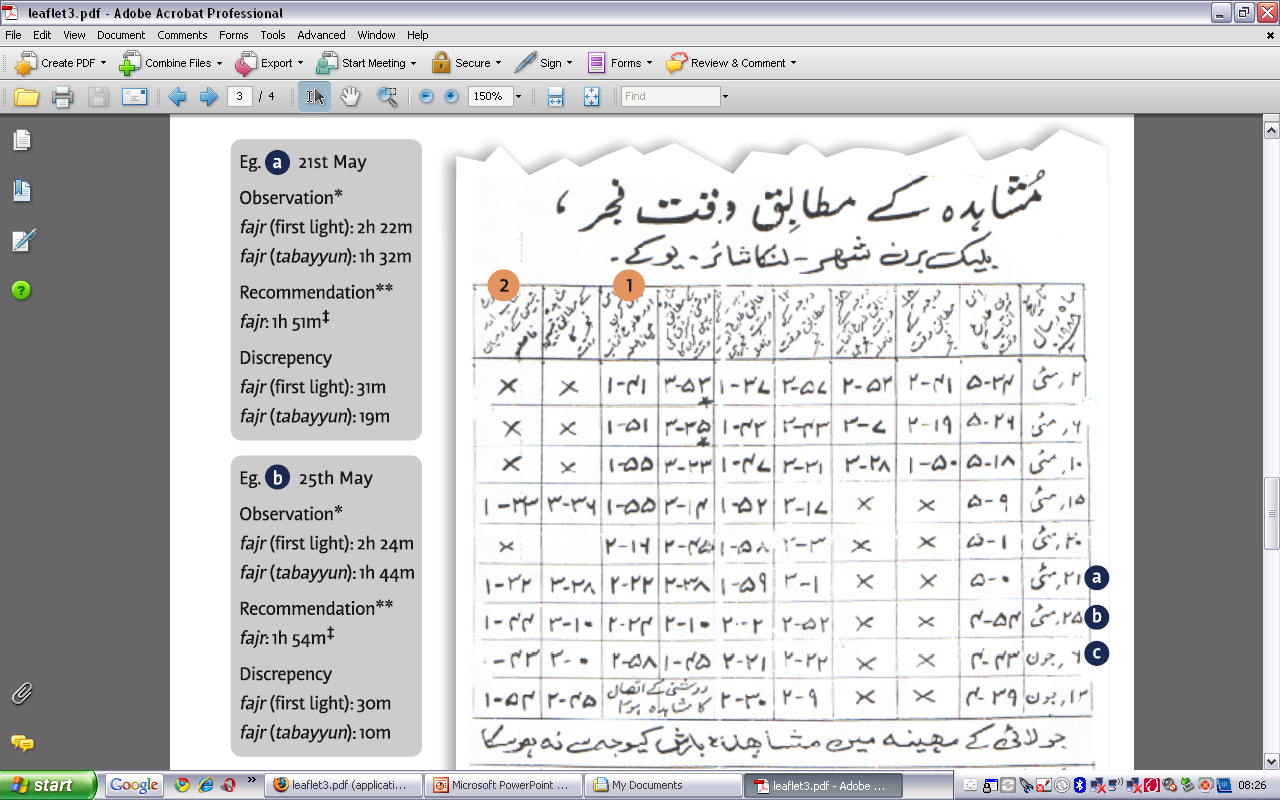 leaflet3.pdf - Adobe Acrobat Professional
File Edit View Document Comments Forms Tools Advanced Window Help
Create PDF Combine Files Export Start Meeting Secure Sign Forms Review & Comment
3 / 4 150% Find
Eg. a 21st May
Observation*
fajr (first light): 2h 22m
fajr (tabayyun): 1h 32m
Recommendation**
fajr: 1h 51m‡
Discrepency
fajr (first light): 31m
fajr (tabayyun): 19m
Eg. b 25th May
Observation*
fajr (first light): 2h 24m
fajr (tabayyun): 1h 44m
Recommendation**
fajr: 1h 54m‡
Discrepency
fajr (first light): 30m
fajr (tabayyun): 10m
مُشاہدہ کے مطابق وقت فجر ،
بلیک برن شہر - لنکاشائر - یو کے -
1 2
۲ مئی ۵-۳۴ ۲-۴۱ ۲-۵۳ ۳-۵۷ ۱-۳۷ ۳-۵۳ ۱-۴۱ × ×
۶ مئی ۵-۲۶ ۲-۱۹ ۳-۷ ۳-۴۳ ۱-۴۳ ۳-۳۵ ۱-۵۱ × ×
۱۰ مئی ۵-۱۸ ۱-۵۰ ۳-۲۸ ۳-۳۱ ۱-۴۷ ۳-۲۳ ۱-۵۵ × ×
۱۵ مئی ۵-۹ × × ۳-۱۷ ۱-۵۲ ۳-۱۴ ۱-۵۵ ۳-۳۶ ۱-۳۳
۲۰ مئی ۵-۱ × × ۳-۳ ۱-۵۸ ۲-۴۵ ۲-۱۶ ×
a ۲۱ مئی ۵-۰ × × ۳-۱ ۱-۵۹ ۲-۳۸ ۲-۲۲ ۳-۲۸ ۱-۳۲
b ۲۵ مئی ۴-۵۴ × × ۲-۵۲ ۲-۰۲ ۲-۱۰ ۲-۲۴ ۳-۱۰ ۱-۴۴
c ۶ جون ۴-۴۳ × × ۲-۲۲ ۲-۲۱ ۱-۴۵ ۲-۵۸ ۳-۰ -۴۳
۱۲ جون ۴-۳۹ × × ۲-۹ ۲-۳۰ روشنی کے اتصال کا مشاہدہ ہوا ۲-۴۵ ۱-۵۴
جولائی کے مہینہ میں مشاہدہ بارش کیوجہ سے نہ ہو سکا
start Google leaflet3.pdf (applicati... Microsoft PowerPoint ... My Documents leaflet3.pdf - Adobe ... 08:26